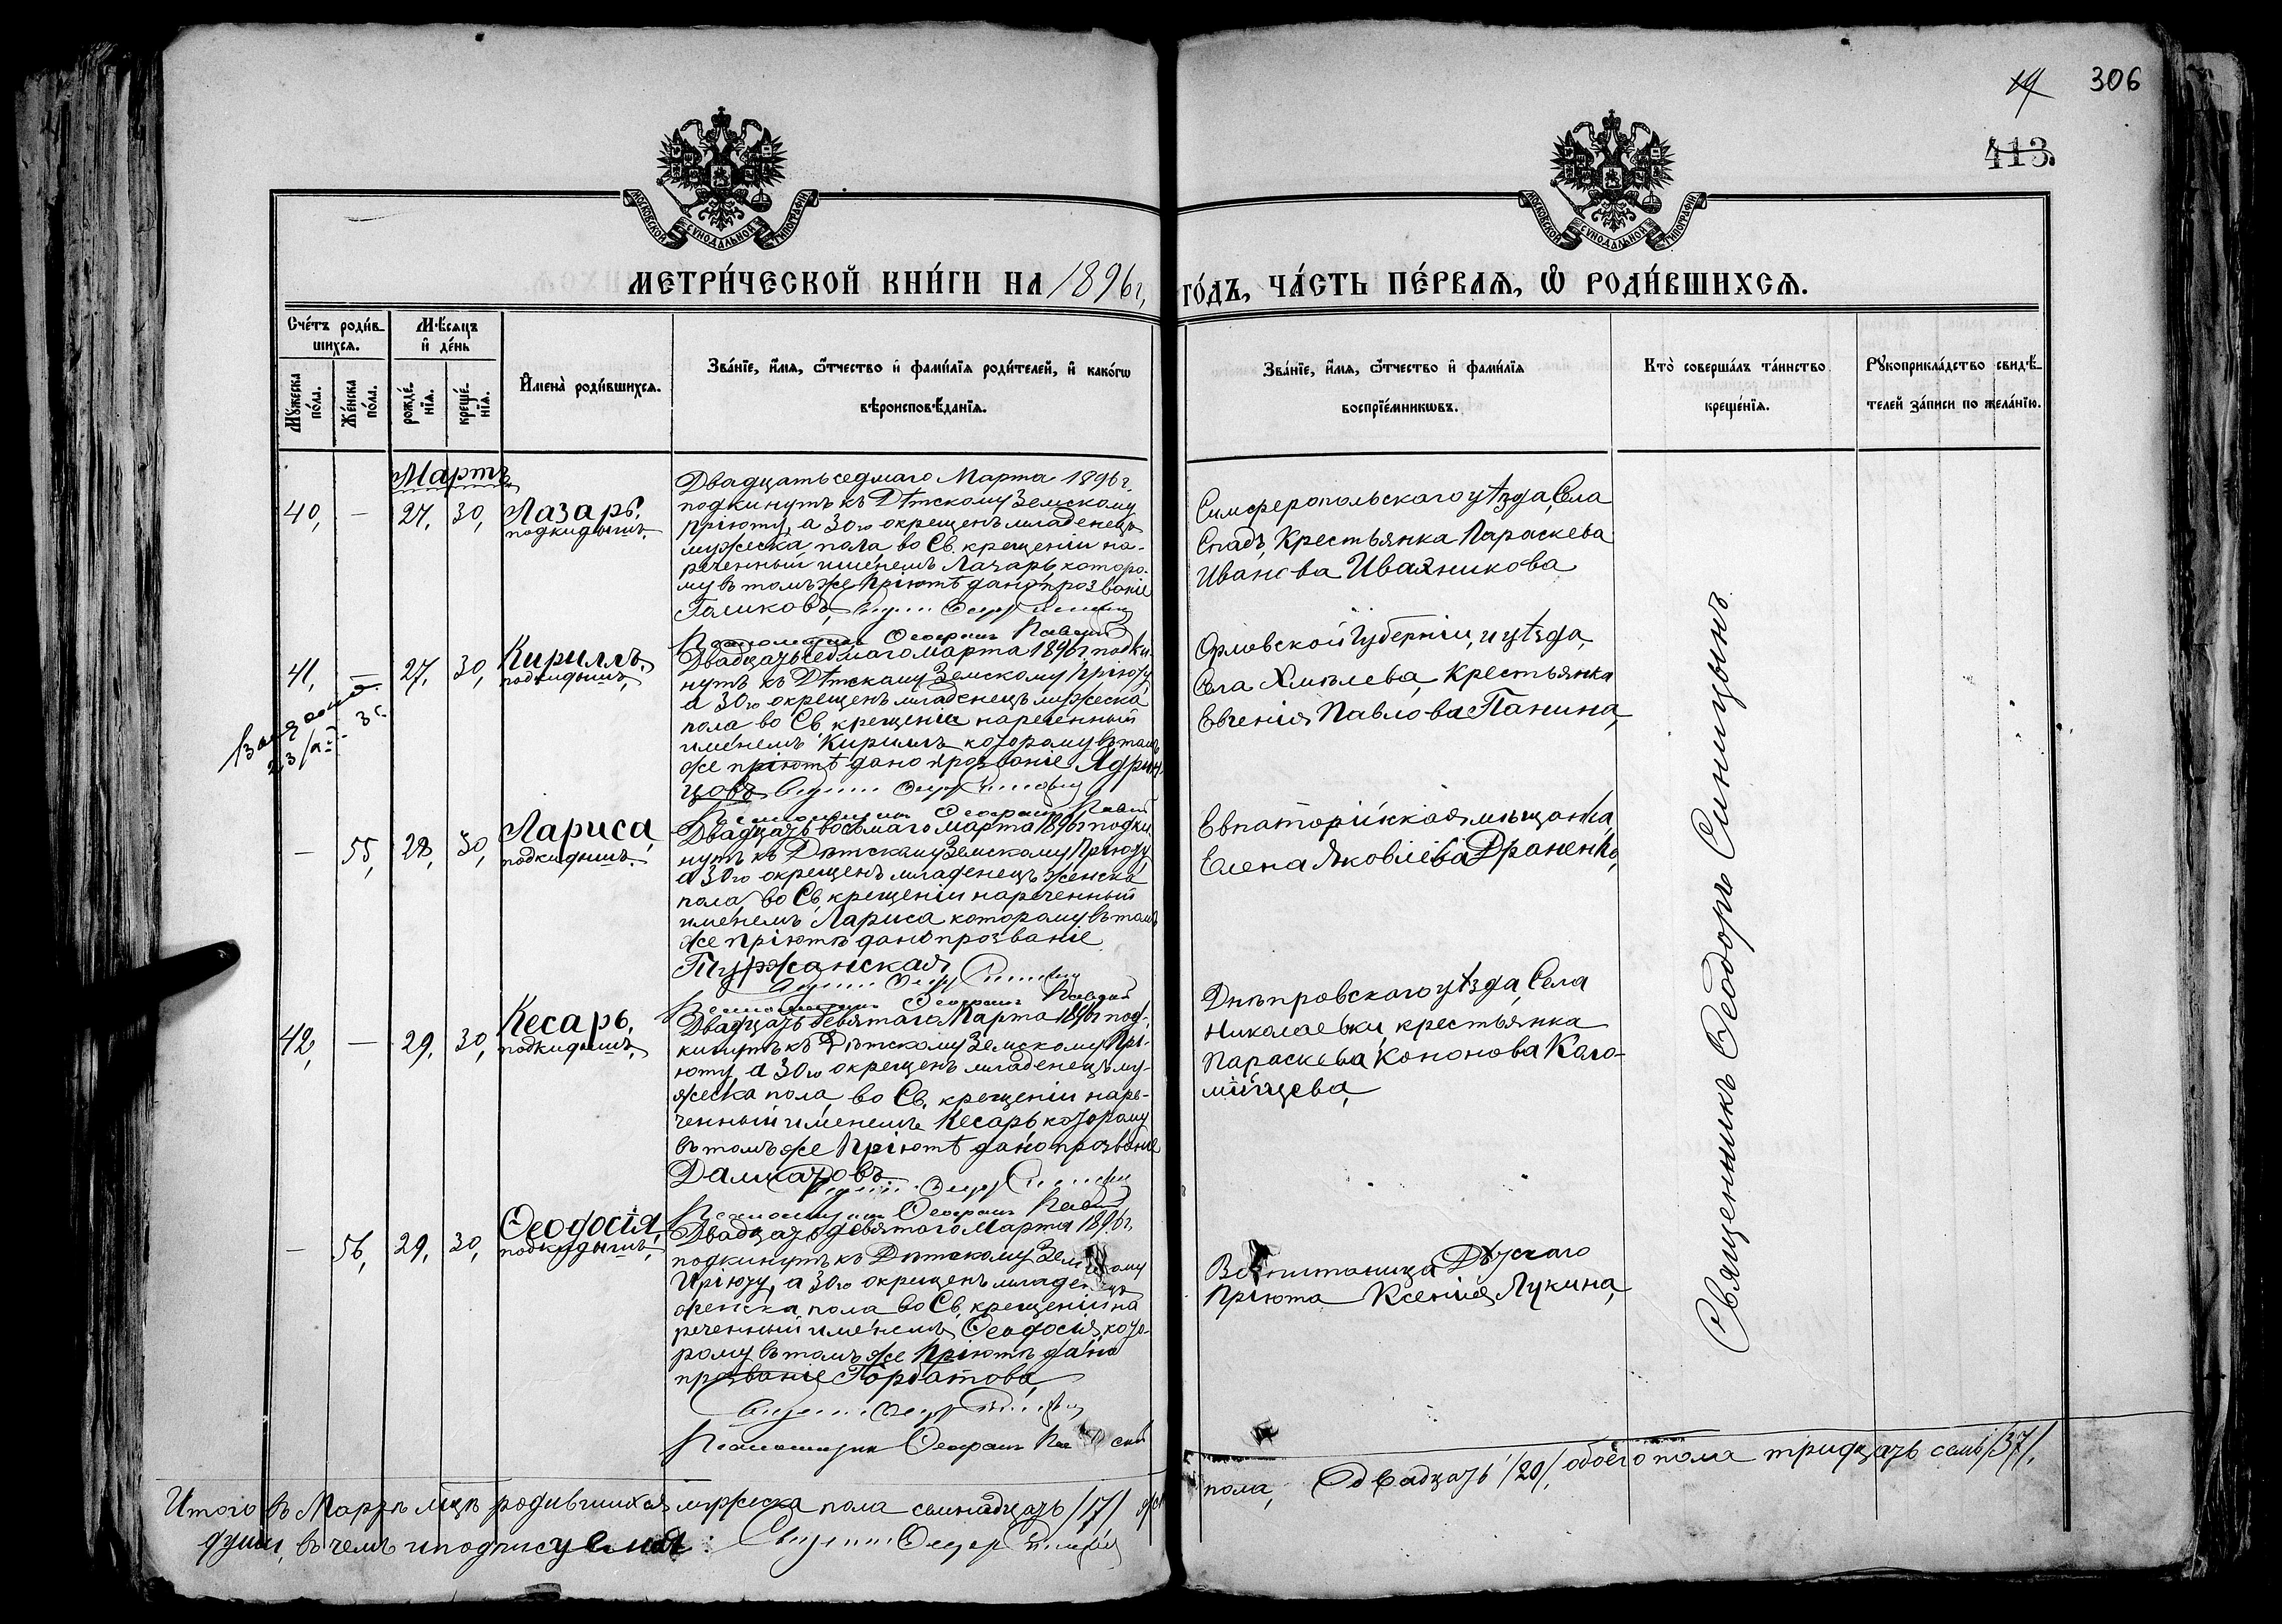 19 306
413.
МОСКОВСКОЙ СѴНОДАЛЬНОЙ ТИПОГРАФІИ
МОСКОВСКОЙ СѴНОДАЛЬНОЙ ТИПОГРАФІИ
МЕТРИ́ЧЕСКОЙ КНИ́ГИ НА 1896 г, ГО́ДЪ, ЧА́СТЬ ПЕ́РВАѦ, Ѽ РОДИ́ВШИХСѦ.
Сче́тъ роди́в-
шихсѧ.
Мꙋжеска по́ла.
Же́нска по́ла.
Мѣ́сѧцъ
и҆ де́нь
рожде́-
нїѧ.
креще́-
нїѧ.
И҆мена̀ роди́вшихсѧ.
Зва́нїе, и҆́мѧ, ѻ҆́тчество и҆ фами́лїѧ роди́телей, и҆ како́гѡ
вѣроисповѣ́данїѧ.
Зва́нїе, и҆́мѧ, ѻ҆́тчество и҆ фами́лїѧ
воспрїе́мникѡвъ.
Кто̀ соверша́лъ та́инство
креще́нїѧ.
Рꙋкоприкла́дство свидѣ́-
телей за́писи по жела́нїю.
Мартъ
40, — 27, 30, Лазарь,
подкидышъ,
Двадцать седмаго Марта 1896 г.
подкинутъ къ Дѣтскому Земскому
Пріюту, а 30го окрещенъ младенецъ
мужеска пола, во Св. крещеніи на-
реченный именемъ Лазарь которо-
му въ томъ же Пріютѣ дано прозваніе
Голиковъ,
Симферопольскаго уѣзда, Села
Крестьянка Параскева
Иванова Иваникова
41, — 27, 30, Кириллъ,
подкидышъ,
Двадцать седмаго марта 1896 г. подки-
нутъ къ Дѣтскому Земскому Пріюту,
а 30го окрещенъ младенецъ мужеска
пола во Св. крещеніи нареченный
именемъ Кириллъ которому въ томъ
же пріютѣ дано прозваніе Ядрин-
цовъ
Орловской Губерніи, и уѣзда,
Села Хмѣлева, Крестьянка
Евгенія Павлова Панина,
— 55, 28, 30, Лариса,
подкидышъ
Двадцать восьмаго марта 1896 г подки-
нутъ къ Дѣтскому Земскому Пріюту
а 30го окрещенъ младенецъ женска
пола, во Св. крещеніи нареченный
именемъ Лариса которому въ томъ
же пріютѣ дано прозваніе
Евпаторійская мѣщанка,
Елена Яковлева
42, — 29, 30, Кесарь,
подкидышъ,
Двадцать девятаго Марта 1896 г под-
кинутъ къ Дѣтскому Земскому Прі-
юту, а 30го окрещенъ младенецъ му-
жеска пола, во Св. крещеніи наре-
ченный именемъ Кесарь которому
въ томъ же Пріютѣ дано прозваніе
Далматовъ
Днѣпровскаго уѣзда, Села
Николаевки, крестьянка
Параскева Кононова Коло-
мійцева,
— 56, 29, 30, Ѳеодосія,
подкидышъ,
Двадцать девятаго Марта 1896 г.
подкинутъ къ Дѣтскому Земскому
Пріюту, а 30го окрещенъ младенецъ
женска пола во Св. крещеніи на
реченный именемъ Ѳеодосія, кото-
рому въ томъ же Пріютѣ дано
прозваніе Горбатова,
Воспитаница Дѣтскаго
Пріюта Ксенія Лукина,
Священникъ Ѳеодоръ Синицынъ
Итого въ Мартѣ мцѣ родившихся мужеска пола семнадцать /17/ пола, двадцать /20/, обоего пола тридцать семь /37/,
души, въ чемъ и подписуемся: